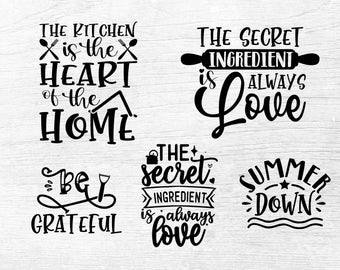 THE KITCHEN
is the
HEART
of the
HOME
THE SECRET
INGREDIENT
is ALWAYS
Love
Be
GRATEFUL
THE
secret
INGREDIENT
is always
love
SUMMER
DOWN